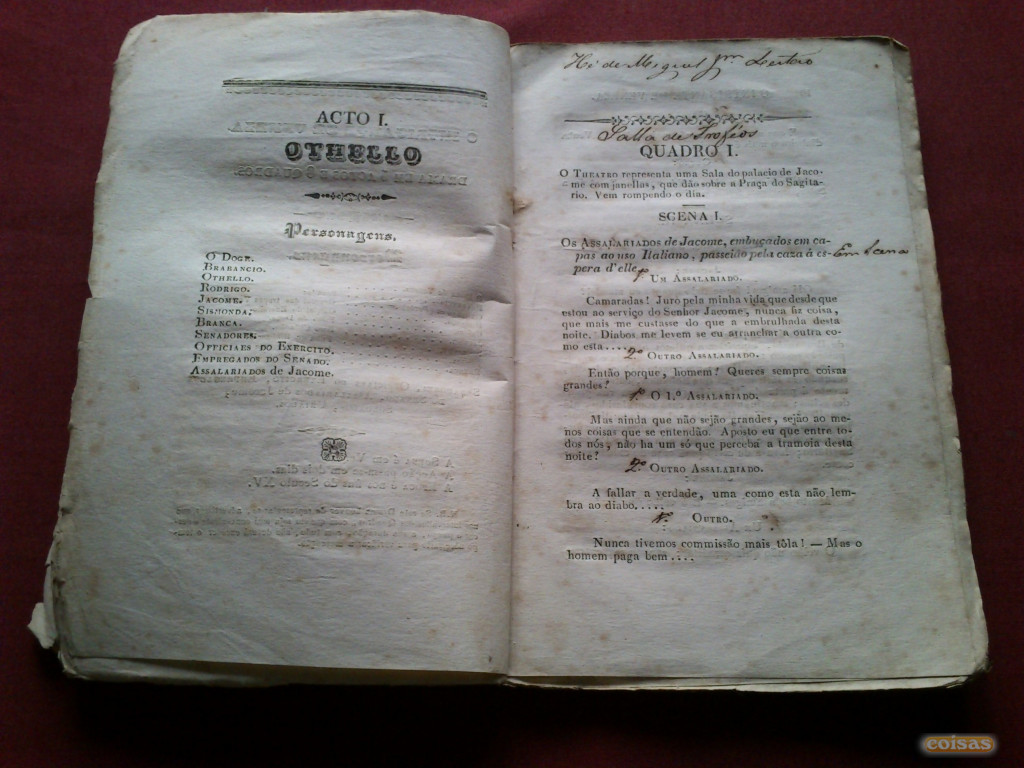 ACTO I.
OTHELLO
Personagens.
O DOGE.
BRABANCIO.
OTHELLO.
RODRIGO.
JACOME.
SISMONDA.
BRANCA.
SENADORES.
OFFICIAES DO EXERCITO.
EMPREGADOS DO SENADO.
ASSALARIADOS DE JACOME.
de Miguel
Salla de Trofeos
QUADRO I.
O THEATRO representa uma Sala do palacio de Jaco-
me com janellas, que dão sobre a Praça do Sagita-
rio. Vem rompendo o dia.
SCENA I.
OS ASSALARIADOS de Jacome, embuçados em ca-
pas ao uso Italiano, passeião pela caza á es- Em Scena
pera d'elle
UM ASSALARIADO.
Camaradas! Juro pela minha vida que desde que
estou ao serviço do Senhor Jacome, nunca fiz coisa,
que mais me custasse do que a embrulhada desta
noite. Diabos me levem se eu atranchar a outra co-
mo esta....
2º OUTRO ASSALARIADO.
Então porque, homem? Queres sempre coisas
grandes?
1º O 1.º ASSALARIADO.
Mas ainda que não sejão grandes, sejão ao me-
nos coisas que se entendão. Aposto eu que entre to-
dos nós, não ha um só que perceba a tramoia desta
noite?
2º OUTRO ASSALARIADO.
A fallar a verdade, uma como esta não lem-
bra ao diabo....
OUTRO.
Nunca tivemos commissão mais tôla! — Mas o
homem paga bem....
coisas